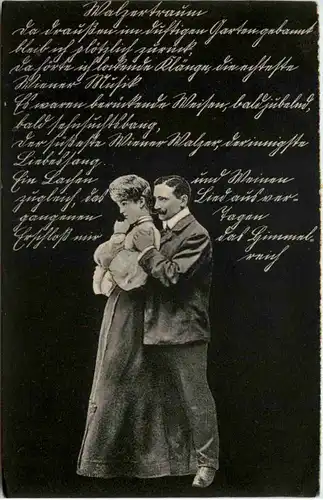 Walzertraum
Da draußen im duftigen Garten gebannt
blieb ich plötzlich zurück
Da hörte ich lockende Klänge, die echteste
Wiener Musik
Es waren berückende Weisen, bald jubelnd,
bald sehnsuchtsbang,
Der süßeste Wiener Walzer, der innigste
Liebessang.
Ein Lachen und Weinen
zugleich, das Lied aus ver-
gangenen Tagen
Erschloß mir das Himmel-
reich